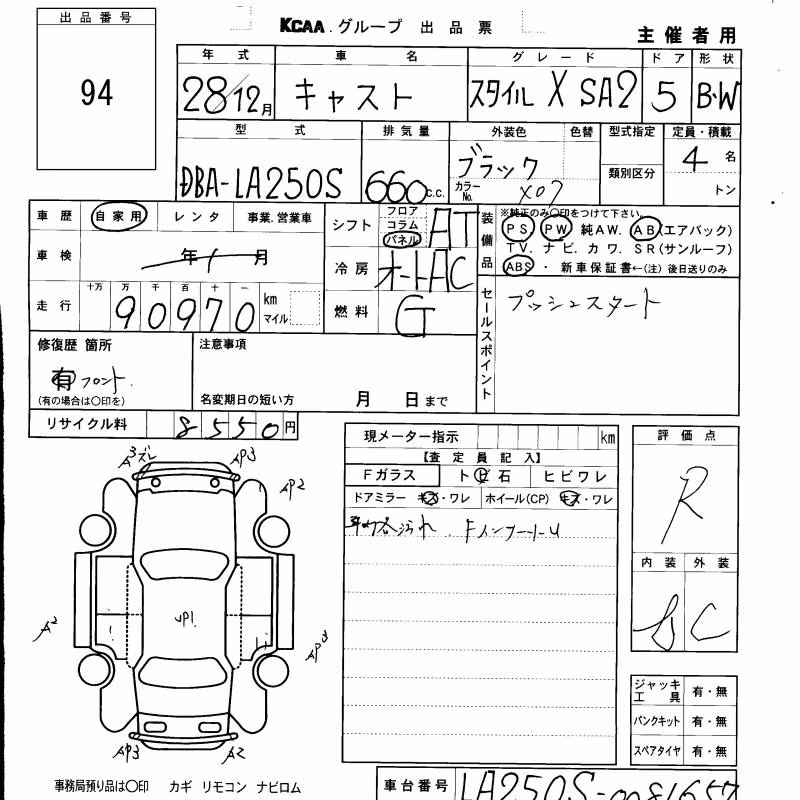 出品番号
94
KCAA.グループ 出品票
主催者用
年式 車名 グレード ドア 形状
28/12月 キャスト スタイル X SA2 5 B・W
型式 排気量 外装色 色替 型式指定 定員・積載
DBA-LA250S 660 c.c. ブラック 類別区分 4 名
カラーNo. X07 トン
車歴 自家用 レンタ 事業.営業車
シフト フロア コラム パネル AT
装備品 ※純正のみ〇印をつけて下さい。
PS PW 純AW. AB(エアバック)
TV. ナビ. カワ. SR(サンルーフ)
ABS ・ 新車保証書←(注)後日送りのみ
車検 年 月
冷房 オートAC
走行 十万 万 千 百 十 一
90970 km マイル
燃料 G
セールスポイント プッシュスタート
修復歴 箇所
有 フロント.
(有の場合は〇印を)
注意事項
名変期日の短い方 月 日まで
リサイクル料 8550円
現メーター指示 km
【査定員記入】
Fガラス トビ石 ヒビワレ
ドアミラー キズ・ワレ ホイール(CP) キズ・ワレ
汚れ FインナーサU
評価点
R
内装 外装
C
A3 ズレ AP3
AP2
UP1
A2
AP3
AP3 A2
ジャッキ工具 有・無
パンクキット 有・無
スペアタイヤ 有・無
事務局預り品は〇印 カギ リモコン ナビロム
車台番号 LA250S-0081657